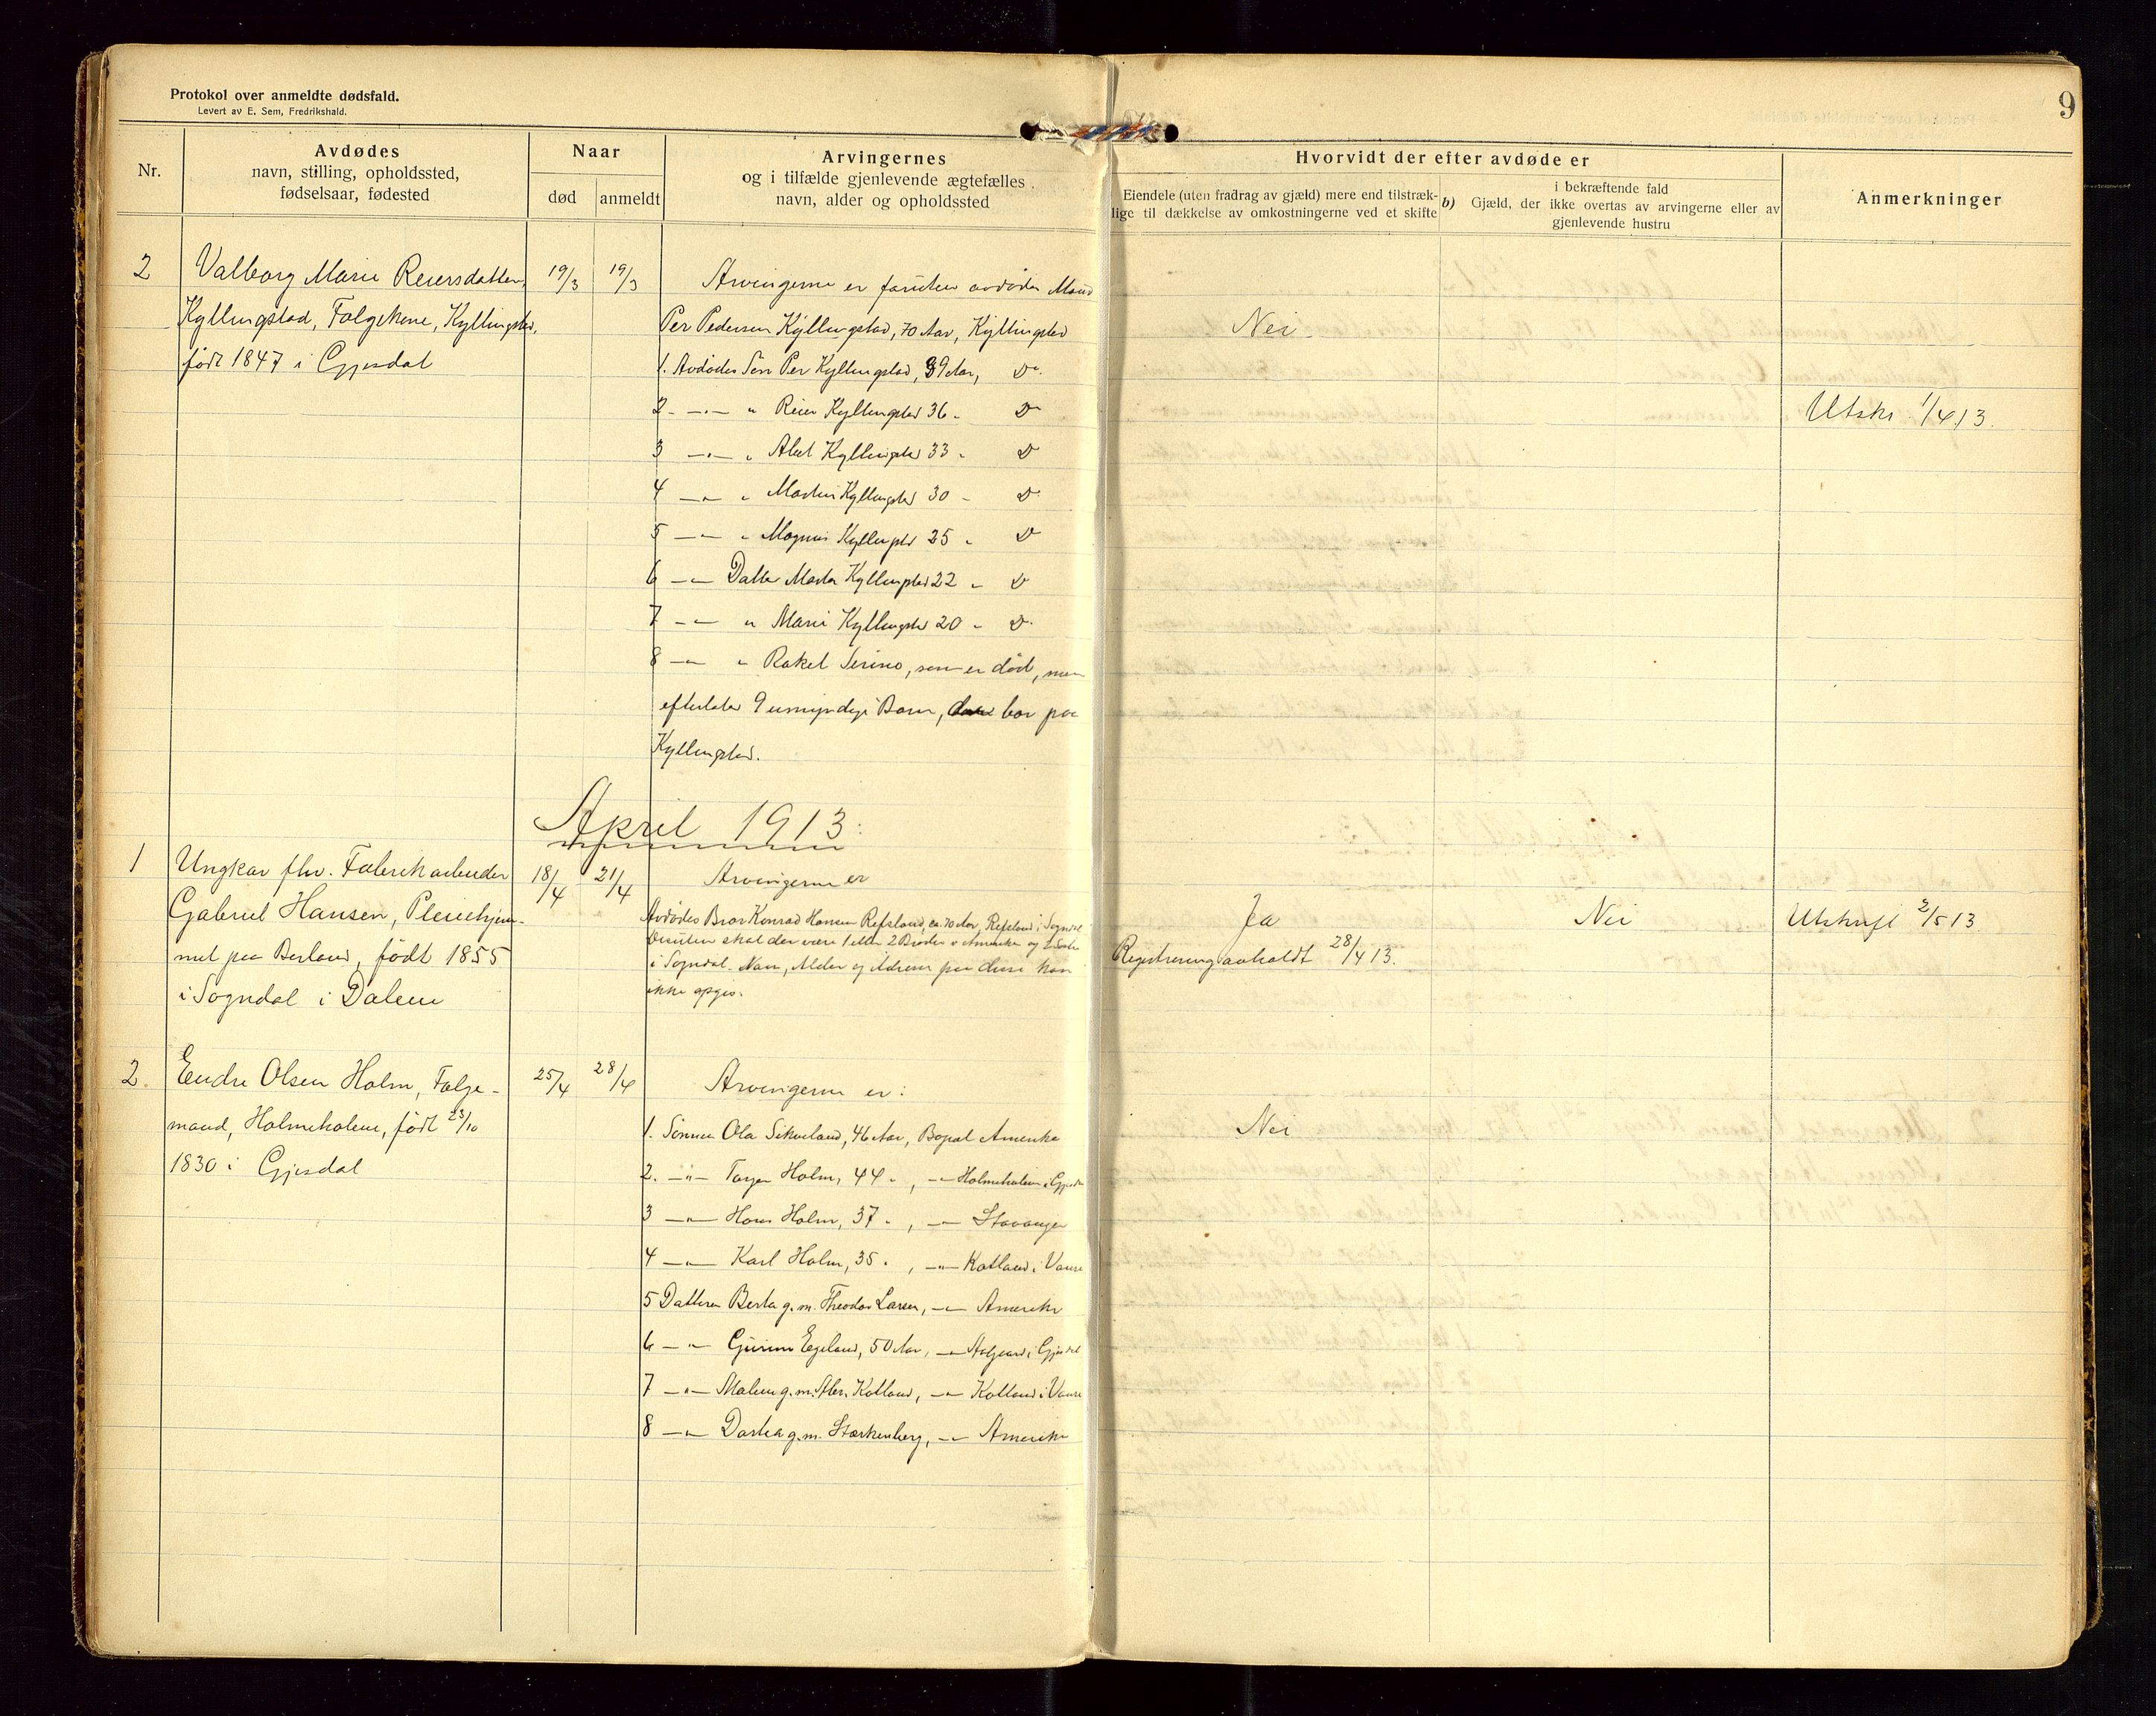 Protokol over anmeldte dødsfald.
Levert av E. Sem, Fredrikshald.
9
Nr.
Avdødes
navn, stilling, opholdssted,
fødselsaar, fødested
Naar
død
anmeldt
Arvingernes
og i tilfælde gjenlevende ægtefælles
navn, alder og opholdssted
Hvorvidt der efter avdøde er
Eiendele (uten fradrag av gjæld) mere end tilstræk-
lige til dækkelse av omkostningerne ved et skifte
b) Gjæld, der i bekræftende fald
ikke overtas av arvingerne eller av
gjenlevende hustru
Anmerkninger
2
Valborg Marie Reiersdatter
Kyllingstad, Folgekone, Kyllingstad,
født 1847 i Gjesdal
19/3
19/3
Arvingerne er foruten avdødes Mand
Per Pedersen Kyllingstad, 70 Aar, Kyllingstad
1. Avdødes Søn Per Kyllingstad, 39 Aar, Do.
2 -"- " Reier Kyllingstad 36 " Do
3 -"- " Abel Kyllingstad 33 " Do
4 -"- " Martin Kyllingstad 30 " Do
5 -"- " Magnus Kyllingstad 25 " Do
6 -"- Datter Marta Kyllingstad 22 " Do
7 -"- " Marie Kyllingstad 20 " Do
8 -"- " Rakel Serine, som er død, men
efterlater 9 umyndige Barn, bor paa
Kyllingstad.
Nei
Utskr. 1/4 13.
April 1913.
1
Ungkar fhv. Fabrikarbeider
Gabriel Hansen, Pleiehjem-
met paa Berland, født 1855
i Sogndal i Dalene
18/4
21/4
Arvingerne er
Avdødes Bror Konrad Hansen Refsland, ca. 70 Aar, Refsland i Sogndal
Desuten skal der være 1 eller 2 Brødre i Amerika og 2 Søstre
i Sogndal. Navn, Alder og Adresse paa disse kan
ikke opgis.
Ja
Registrering avholdt 28/4 13.
Nei
Utskrift 2/5 13
2.
Endre Olsen Holm, Folge-
mand, Holmeholene, født 23/10
1830 i Gjesdal
25/4
28/4
Arvingerne er:
1. Sønnen Ola Sikveland, 46 Aar, Bopæl Amerika
2. -"- Torger Holm, 44 " , -"- Holmeholene i Gjesdal
3 -"- Hans Holm, 37 " , -"- Stavanger
4 -"- Karl Holm, 35 " , -"- Kolland i Vanse
5 Datteren Berta g. m. Theodor Larsen, -"- Amerika
6 -"- Gurine Egeland, 50 Aar, -"- Aalgaard i Gjesdal
7 -"- Malene g. m. Abr. Kolland, -"- Kolland i Vanse
8 -"- Dortea g. m. Starkenberg, -"- Amerika
Nei